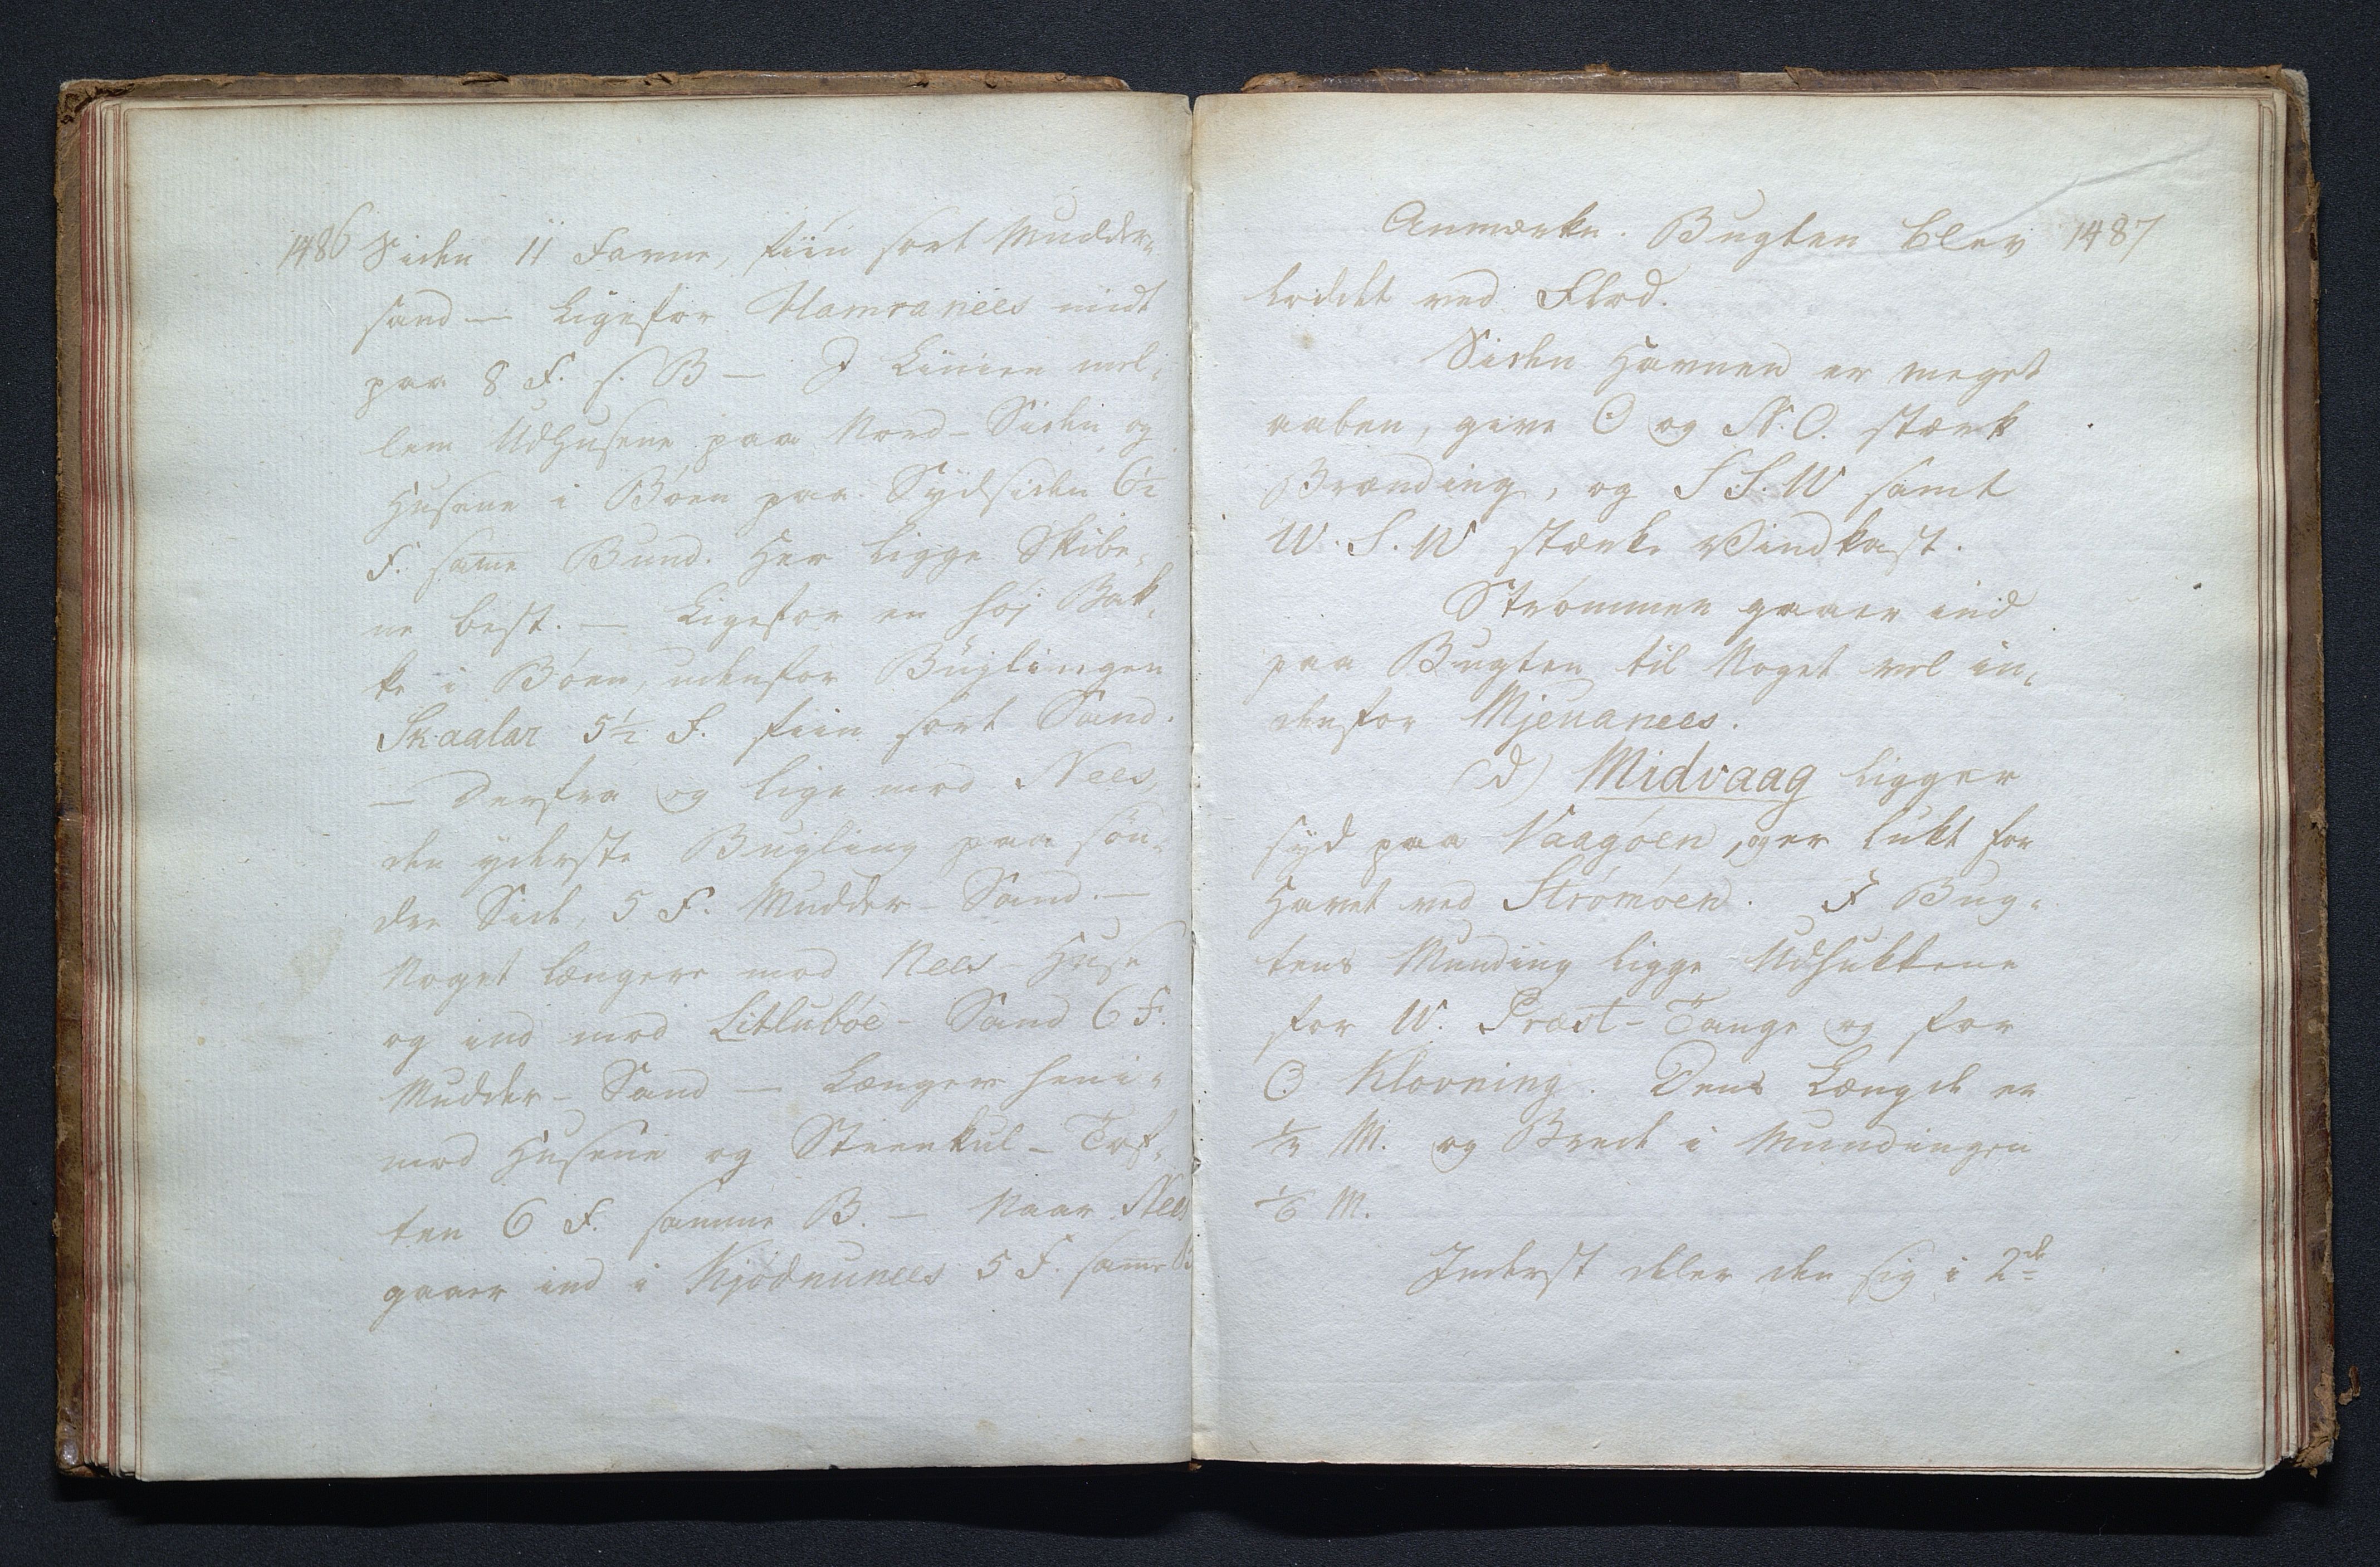 1486 Siden 11 Favne, fiin sort Mudder-
sand — Ligefor Hamranees midt
paa 8 F. s. B — I Linien mel-
lem Udhusene paa Nord-Siden og
Husene i Bøen paa Sydsiden 6½
F. sam̅e Bund. Her ligge Skibe-
ne best. — Ligefor en høj Bak-
ke i Bøen, udenfor Büglingen
Skaalar 5½ F. fiin sort Sand.
— Derfra og lige mod Nees,
den yderste Bugling paa søn-
dre Side, 5 F. Mudder-Sand. —
Noget længere mod Nees-Huse
og ind mod Litlubøe-Sand 6 F.
Mudder-Sand — Længer hen i-
mod Husene og Steenkul-Tof-
ten 6 F. samme B. — Naar Nees
gaaer ind i Kjødnunees 5 F. sam̅e B
Anmærkn. Bugten blev 1487
loddet ved Flod.
Siden Havnen er meget
aaben, give O og N.O. stærk
Brænding, og S S.W samt
W.S.W stærke Vindkast.
Strømmen gaaer ind
paa Bugten til Noget vel in-
denfor Mjeuanees.
d) Midvaag ligger
syd paa Vaagøen, og er lukt for
Havet ved Strømøen. I Bug-
tens Munding ligge Udhukkene
for W. Præst-Tange og for
O Klovning. Dens Længde er
M. og Brede i Mundingen
1/6 M.
Inderst deler den sig i 2de